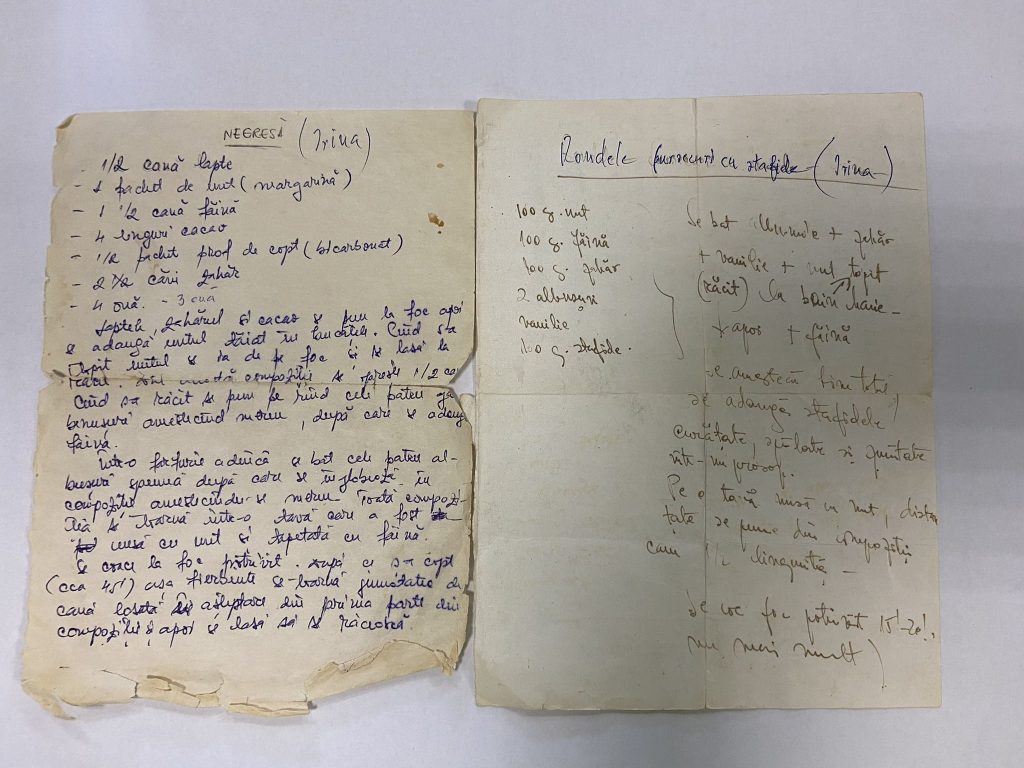 NEGRESĂ (Irina)
- 1/2 cană lapte
- 1 pachet de unt (margarină)
- 1 1/2 cană făină
- 4 linguri cacao
- 1/2 pachet praf de copt (bicarbonat)
- 2 1/2 căni zahăr
- 4 ouă. - 3 ouă
Laptele, zahărul si cacao se pun la foc apoi
se adaugă untul tăiat in bucatele. Cînd s-a
topit untul se ia de pe foc si se lasă la
răcit. această compozitie se opreste 1/2 ca
Cînd s-a răcit se pun pe rînd cele patru găl
benusuri amestecînd mereu, după care se adaug
făină.
Într-o farfurie adîncă se bat cele patru al-
busuri spumă după care se înglobează în
compozitie amestecîndu-se mereu. Toată compozi-
tia se toarnă intr-o tavă care a fost
unsă cu unt si tapetată cu făină.
Se coace la foc potrivit. După ce s-a copt
(cca 45') asa fierbinte se toarnă jumătatea de
cană lăsată în asteptare din prima parte din
compozitie si apoi se lasă să se răcească
Rondele cu stafide (Irina)
100 g. unt
100 g. făină
100 g. zahăr
2 albusuri
vanilie
100 g. stafide.
Se bat albusurile + zahăr
+ vanilie + unt topit
(răcit) la bain marie -
+ apoi + făină
se amestecă bine totul
se adaugă stafidele
curătate, spălate si zvîntate
într-un prosop.
Pe o tavă unsă cu unt, distan
tate se pune din compozitie
cam 1/2 linguriță -
Se coc foc potrivit 15'-20'.
nu mai mult)